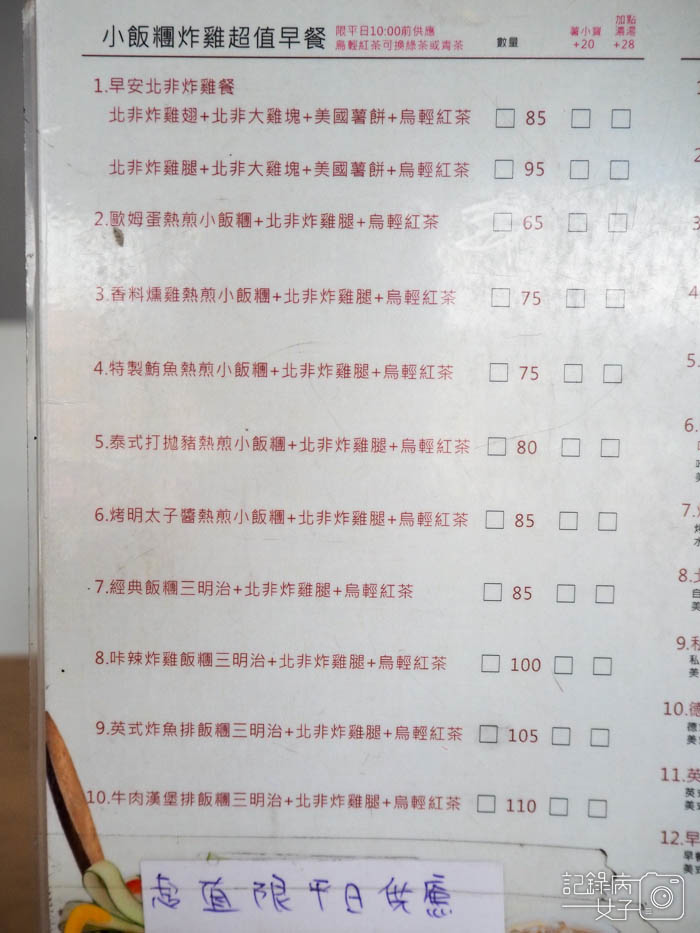 小飯糰炸雞超值早餐
限平日10:00前供應
烏輕紅茶可換綠茶或青茶
數量
薯小寶
+20
加點
濃湯
+28
1.早安北非炸雞餐
北非炸雞翅+北非大雞塊+美國薯餅+烏輕紅茶 □ 85 □ □
北非炸雞腿+北非大雞塊+美國薯餅+烏輕紅茶 □ 95 □ □
2.歐姆蛋熱煎小飯糰+北非炸雞腿+烏輕紅茶 □ 65 □ □
3.香料燻雞熱煎小飯糰+北非炸雞腿+烏輕紅茶 □ 75 □ □
4.特製鮪魚熱煎小飯糰+北非炸雞腿+烏輕紅茶 □ 75 □ □
5.泰式打拋豬熱煎小飯糰+北非炸雞腿+烏輕紅茶 □ 80 □ □
6.烤明太子醬熱煎小飯糰+北非炸雞腿+烏輕紅茶 □ 85 □ □
7.經典飯糰三明治+北非炸雞腿+烏輕紅茶 □ 85 □ □
8.咔辣炸雞飯糰三明治+北非炸雞腿+烏輕紅茶 □ 100 □ □
9.英式炸魚排飯糰三明治+北非炸雞腿+烏輕紅茶 □ 105 □ □
10.牛肉漢堡排飯糰三明治+北非炸雞腿+烏輕紅茶 □ 110 □ □
超值限平日供應
4
5.
6.
美
7.
水
8.
自
美
9.私
私
美
10.德
德
美
11.英
英式
美式
12.早
早餐
美式
記錄病女子